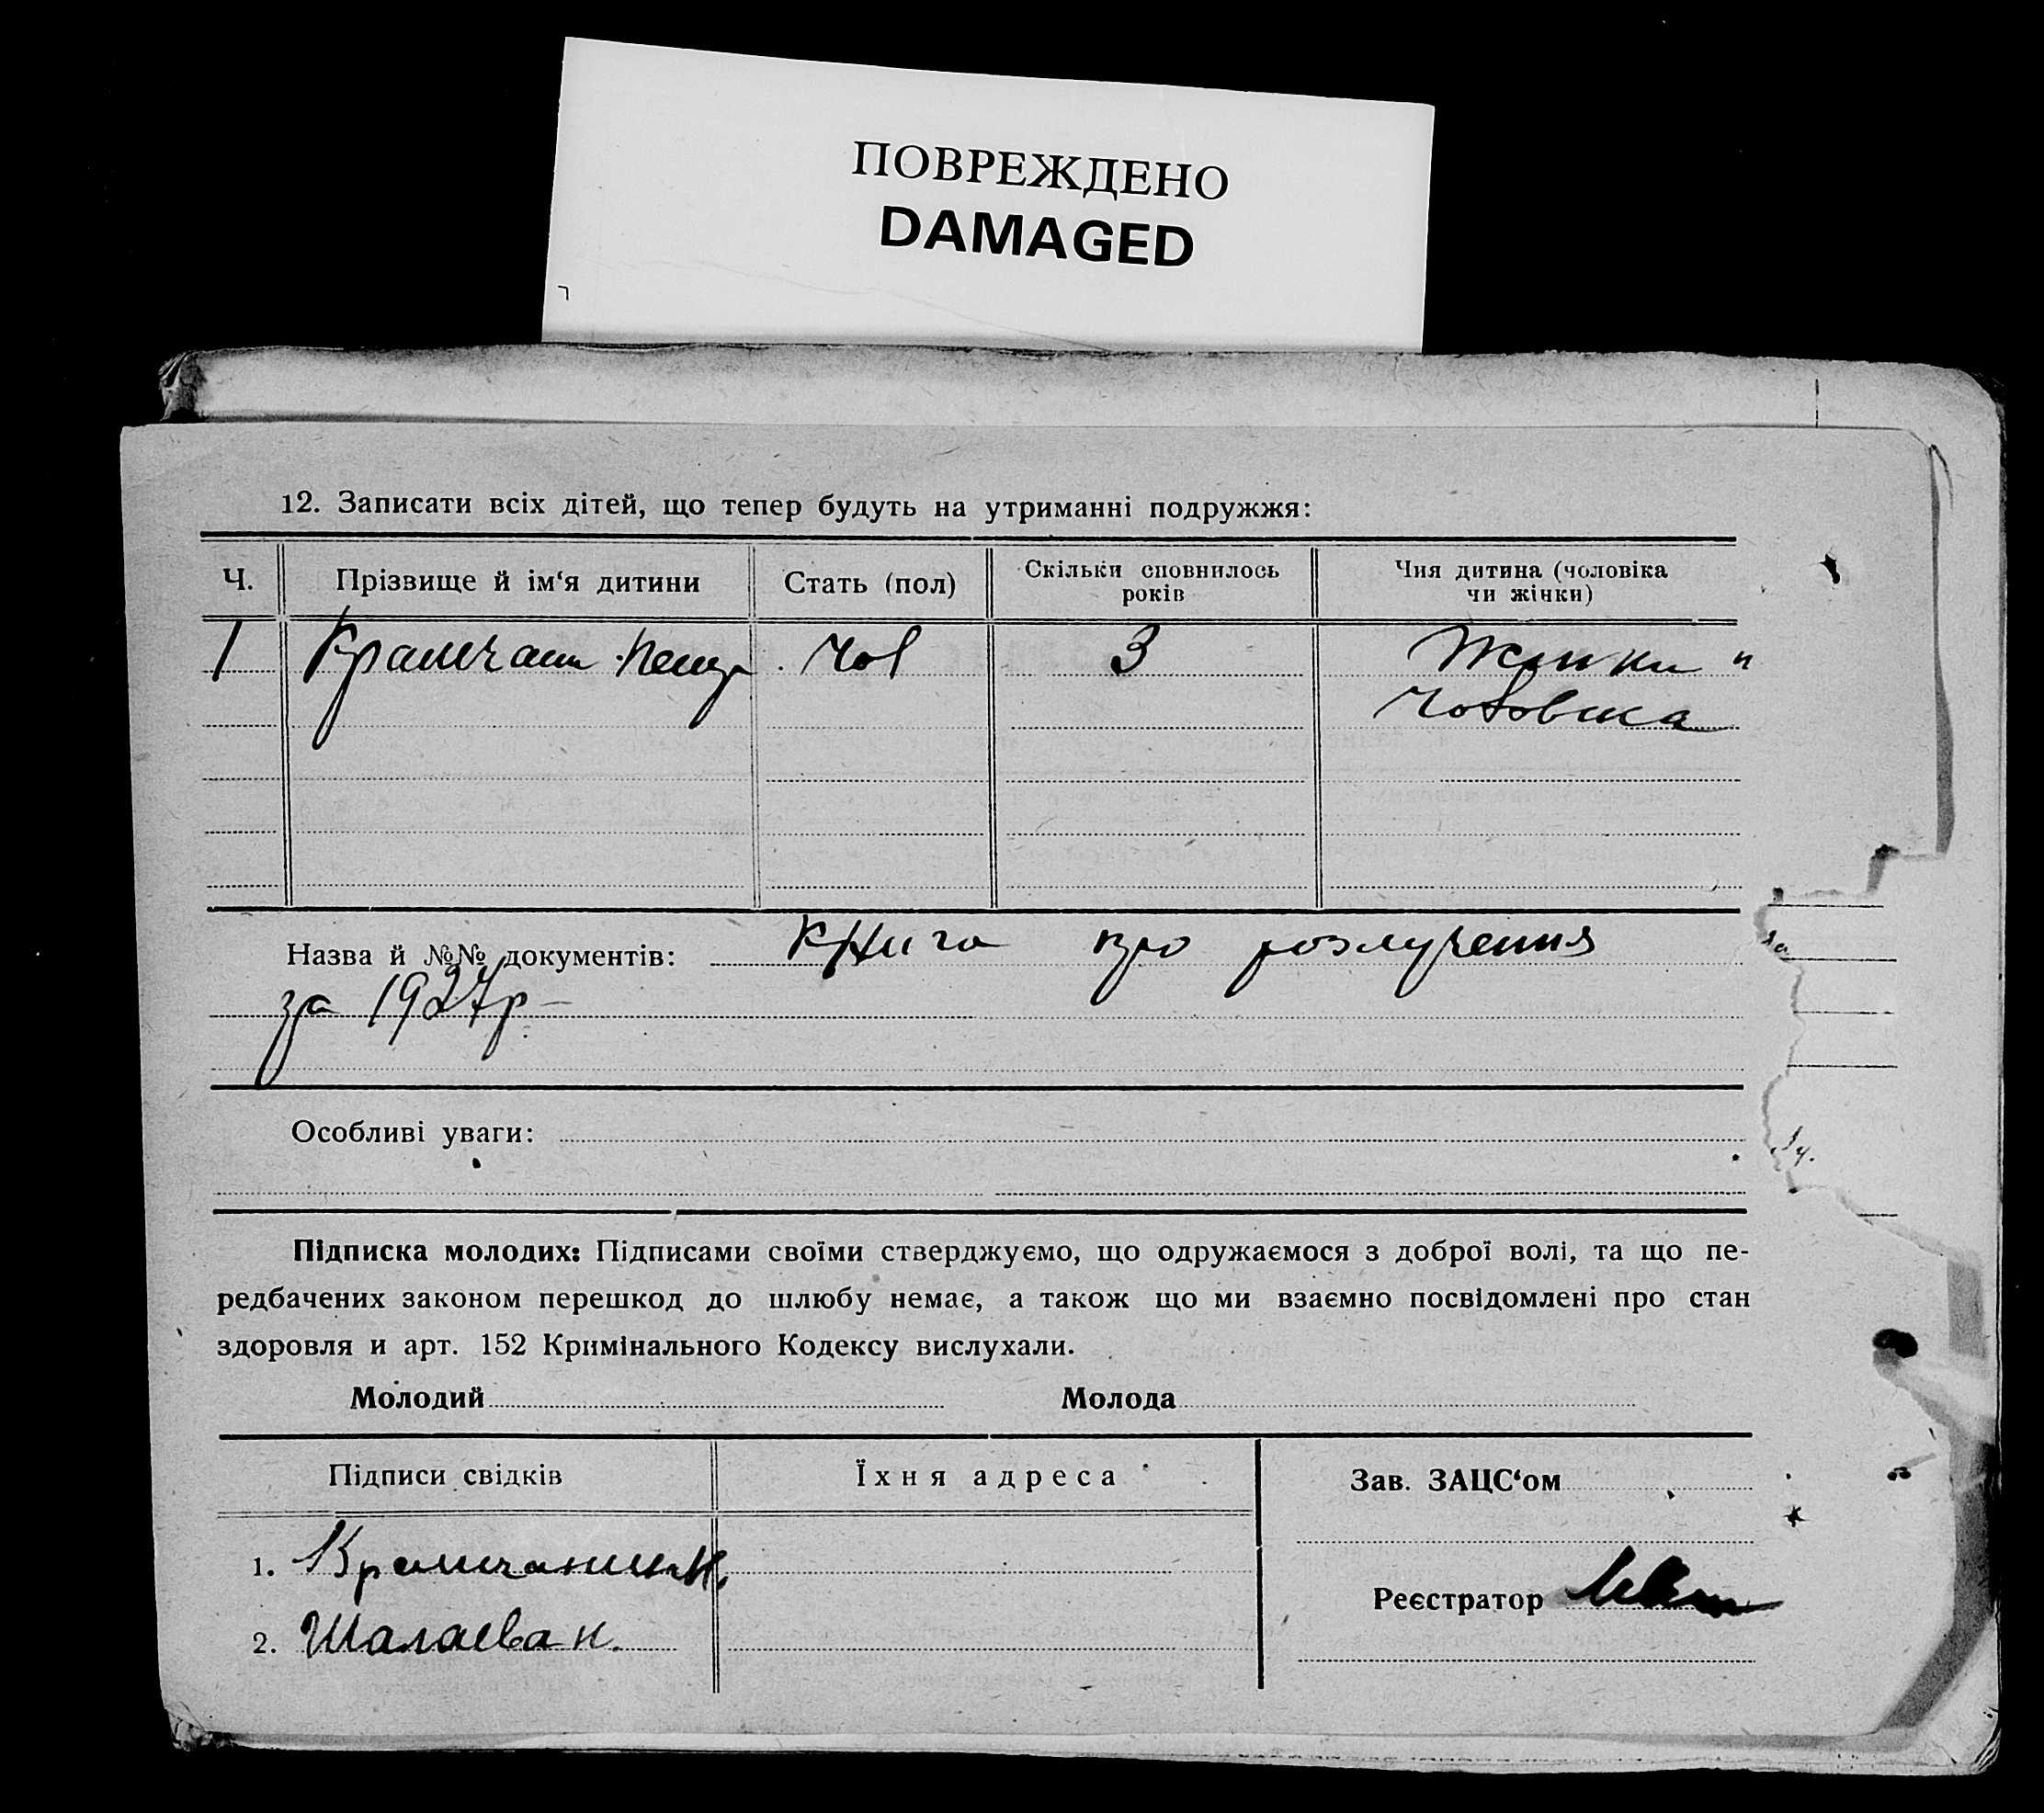 ПОВРЕЖДЕНО
DAMAGED
12. Записати всіх дітей, що тепер будуть на утриманні подружжя:
Ч. Прізвище й ім‘я дитини Стать (пол) Скільки сповнилось років Чия дитина (чоловіка чи жінки)
1 чол 3 Жінки и
чоловіка
Назва й №№ документів: Книга про розлучення
за 1927р
Особливі уваги:
Підписка молодих: Підписами своїми стверджуємо, що одружаємося з доброї волі, та що пе-
редбачених законом перешкод до шлюбу немає, а також що ми взаємно посвідомлені про стан
здоровля и арт. 152 Кримінального Кодексу вислухали.
Молодий Молода
Підписи свідків Їхня адреса Зав. ЗАЦС‘ом
1.
Реєстратор
2. Шалаева н.